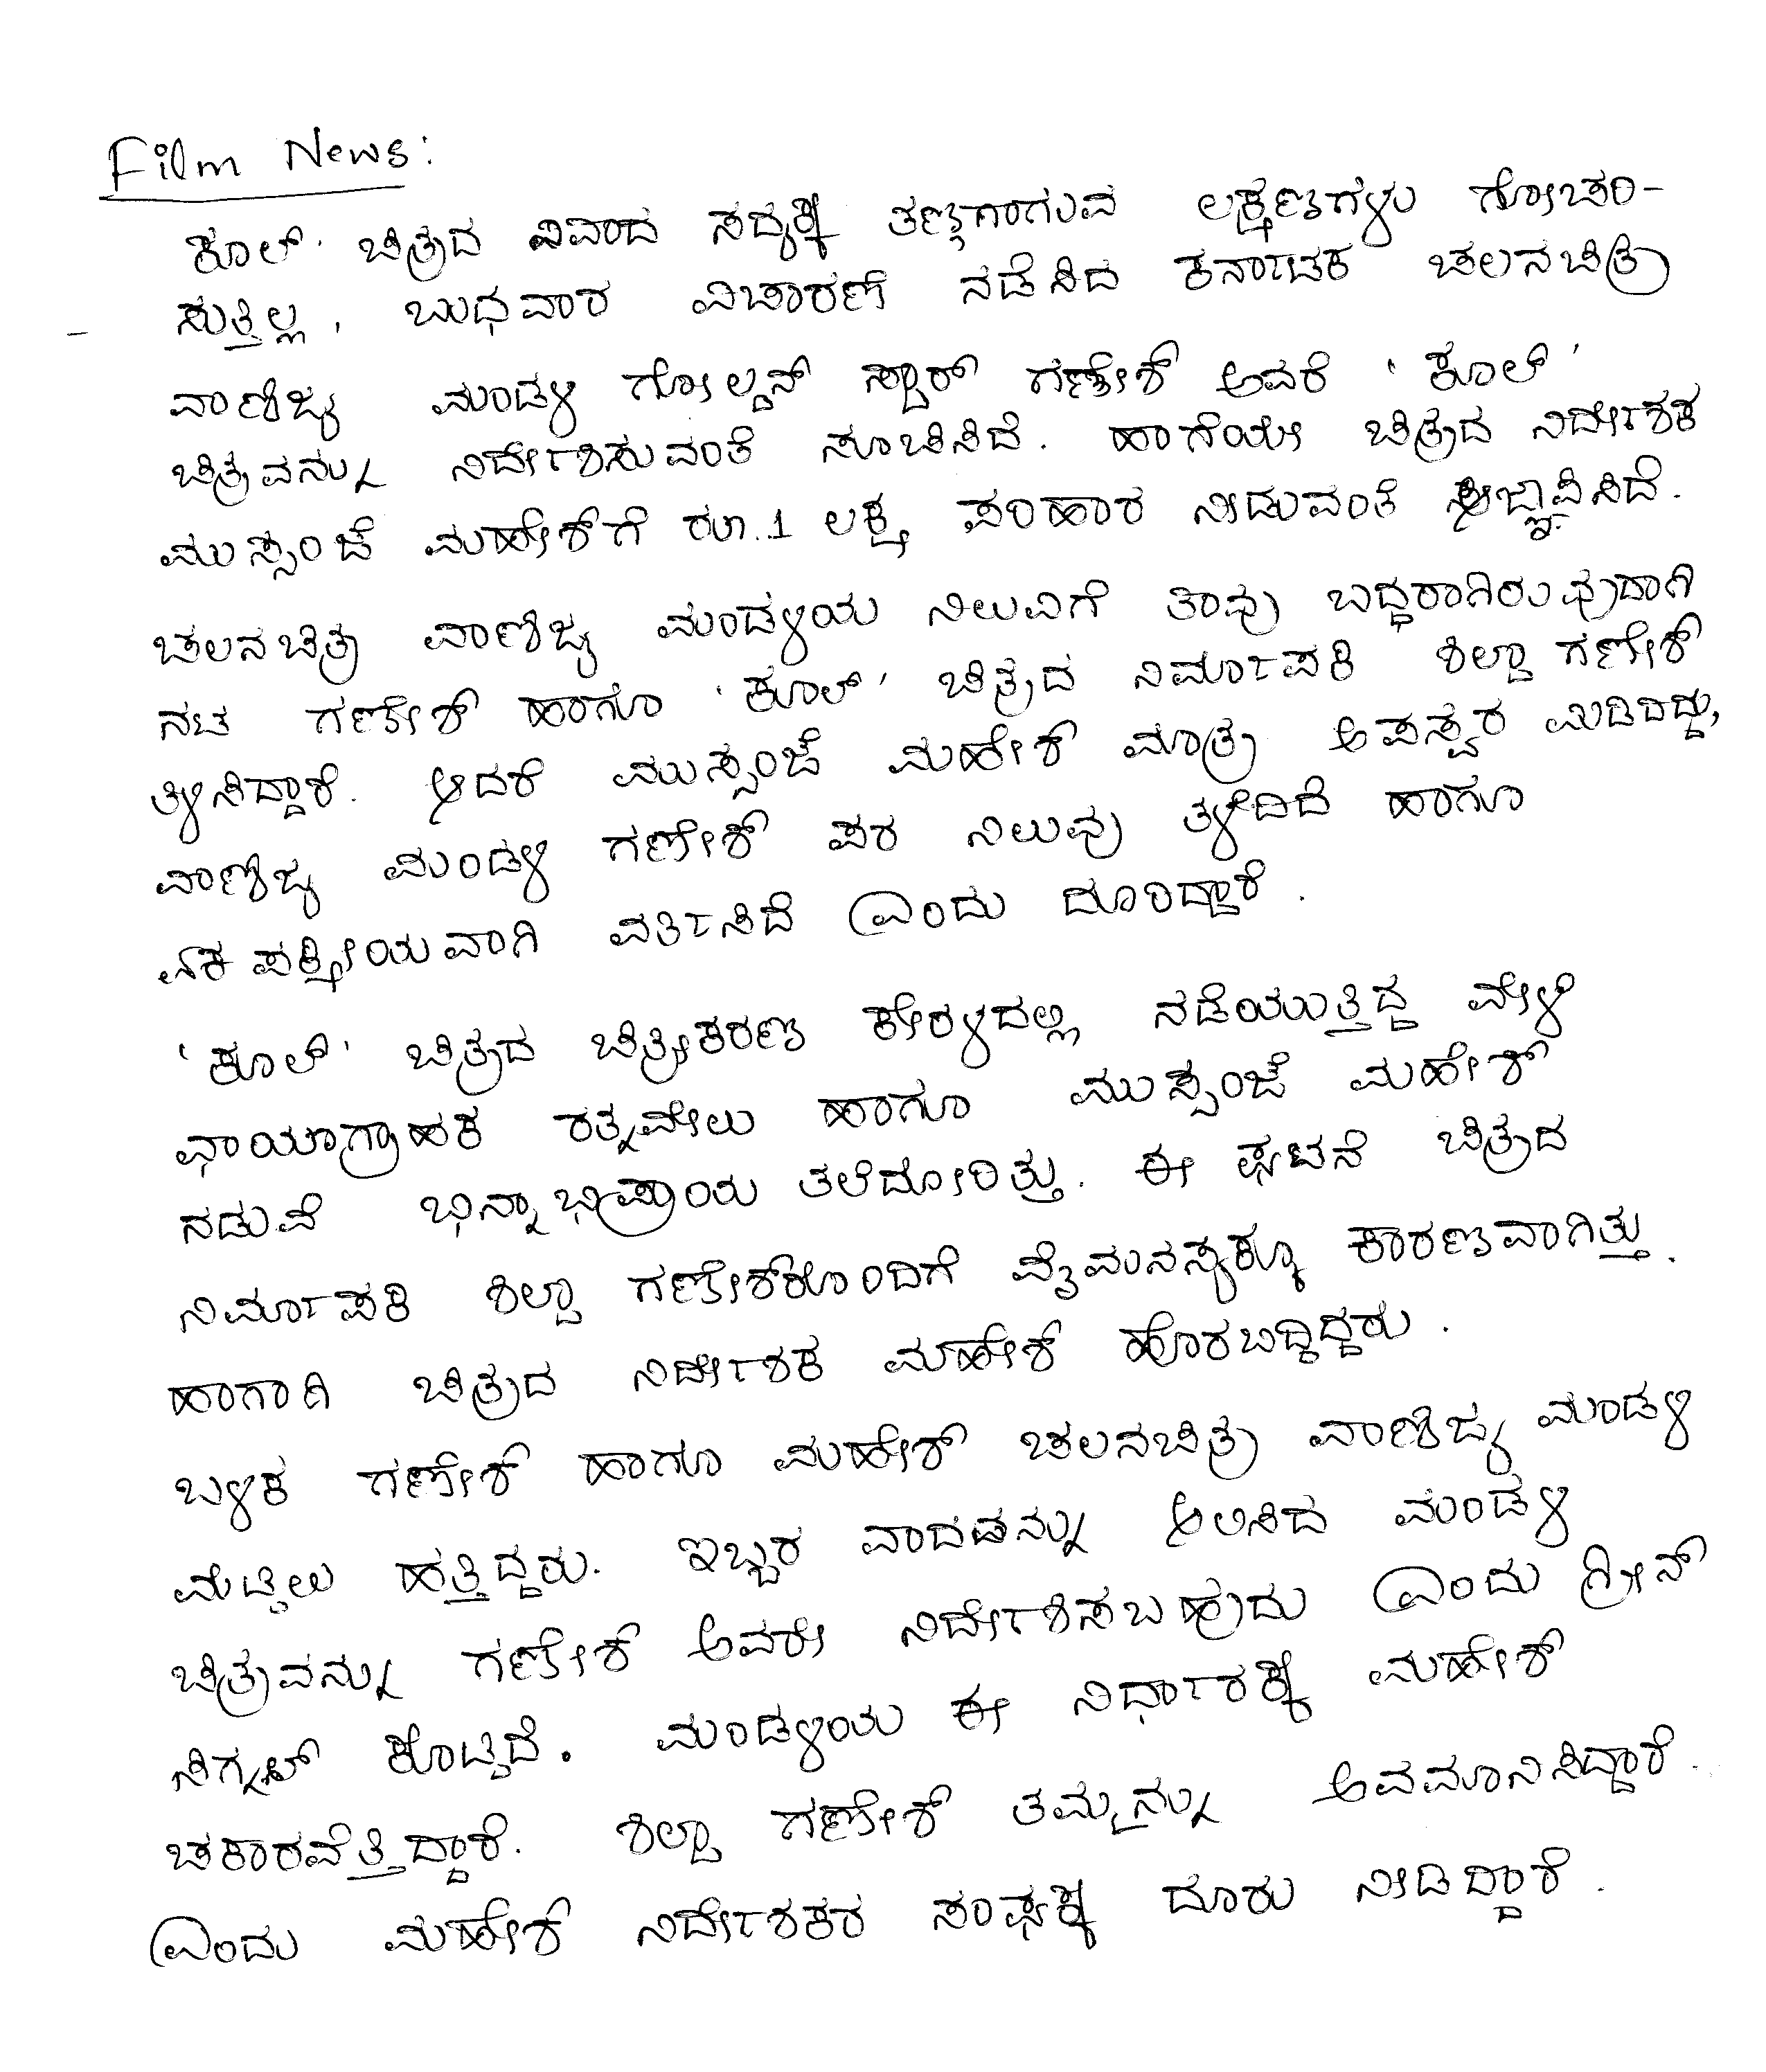 Film News:
ಕೂಲ್' ಚಿತ್ರದ ವಿವಾದ ಸದ್ಯಕ್ಕೆ ತಣ್ಣಗಾಗುವ ಲಕ್ಷಣಗಳು ಗೋಚರಿ-
ಸುತ್ತಿಲ್ಲ, ಬುಧವಾರ ವಿಚಾರಣೆ ನಡೆಸಿದ ಕರ್ನಾಟಕ ಚಲನಚಿತ್ರ
ವಾಣಿಜ್ಯ ಮಂಡಳಿ ಗೋಲ್ಡನ್ ಸ್ಟಾರ್ ಗಣೇಶ್ ಅವರೆ 'ಕೂಲ್'
ಚಿತ್ರವನ್ನು ನಿರ್ದೇಶಿಸುವಂತೆ ಸೂಚಿಸಿದೆ. ಹಾಗೆಯೇ ಚಿತ್ರದ ನಿರ್ದೇಶಕ
ಮುಸ್ಸಂಜೆ ಮಹೇಶ್‌ಗೆ ರೂ.1 ಲಕ್ಷ ಪರಿಹಾರ ನೀಡುವಂತೆ ಆಜ್ಞಾಪಿಸಿದೆ.
ಚಲನಚಿತ್ರ ವಾಣಿಜ್ಯ ಮಂಡಳಿಯ ನಿಲುವಿಗೆ ತಾವು ಬದ್ಧರಾಗಿರುವುದಾಗಿ
ನಟ ಗಣೇಶ್ ಹಾಗೂ 'ಕೂಲ್' ಚಿತ್ರದ ನಿರ್ಮಾಪಕಿ ಶಿಲ್ಪಾ ಗಣೇಶ್
ತಿಳಿಸಿದ್ದಾರೆ. ಆದರೆ ಮುಸ್ಸಂಜೆ ಮಹೇಶ್ ಮಾತ್ರ ಅಪಸ್ವರ ಮಿಡಿದಿದ್ದು,
ವಾಣಿಜ್ಯ ಮಂಡಳಿ ಗಣೇಶ್ ಪರ ನಿಲುವು ತಳೆದಿದೆ ಹಾಗೂ
ಏಕಪಕ್ಷೀಯವಾಗಿ ವರ್ತಿಸಿದೆ ಎಂದು ದೂರಿದ್ದಾರೆ.
'ಕೂಲ್' ಚಿತ್ರದ ಚಿತ್ರೀಕರಣ ಕೇರಳದಲ್ಲಿ ನಡೆಯುತ್ತಿದ್ದ ವೇಳೆ
ಛಾಯಾಗ್ರಾಹಕ ರತ್ನವೇಲು ಹಾಗೂ ಮುಸ್ಸಂಜೆ ಮಹೇಶ್
ನಡುವೆ ಭಿನ್ನಾಭಿಪ್ರಾಯ ತಲೆದೋರಿತ್ತು. ಈ ಘಟನೆ ಚಿತ್ರದ
ನಿರ್ಮಾಪಕಿ ಶಿಲ್ಪಾ ಗಣೇಶ್‌ರೊಂದಿಗೆ ವೈಮನಸ್ಯಕ್ಕೂ ಕಾರಣವಾಗಿತ್ತು.
ಹಾಗಾಗಿ ಚಿತ್ರದ ನಿರ್ದೇಶಕ ಮಹೇಶ್ ಹೊರಬಿದ್ದಿದ್ದರು.
ಬಳಿಕ ಗಣೇಶ್ ಹಾಗೂ ಮಹೇಶ್ ಚಲನಚಿತ್ರ ವಾಣಿಜ್ಯ ಮಂಡಳಿ
ಮೆಟ್ಟಿಲು ಹತ್ತಿದ್ದರು. ಇಬ್ಬರ ವಾದವನ್ನು ಆಲಿಸಿದ ಮಂಡಳಿ
ಚಿತ್ರವನ್ನು ಗಣೇಶ್ ಅವರೇ ನಿರ್ದೇಶಿಸಬಹುದು ಎಂದು ಗ್ರೀನ್
ಸಿಗ್ನಲ್ ಕೊಟ್ಟಿದೆ. ಮಂಡಳಿಯ ಈ ನಿರ್ಧಾರಕ್ಕೆ ಮಹೇಶ್
ಚಕಾರವೆತ್ತಿದ್ದಾರೆ. ಶಿಲ್ಪಾ ಗಣೇಶ್ ತಮ್ಮನ್ನು ಅವಮಾನಿಸಿದ್ದಾರೆ.
ಎಂದು ಮಹೇಶ್ ನಿರ್ದೇಶಕರ ಸಂಘಕ್ಕೆ ದೂರು ನೀಡಿದ್ದಾರೆ.